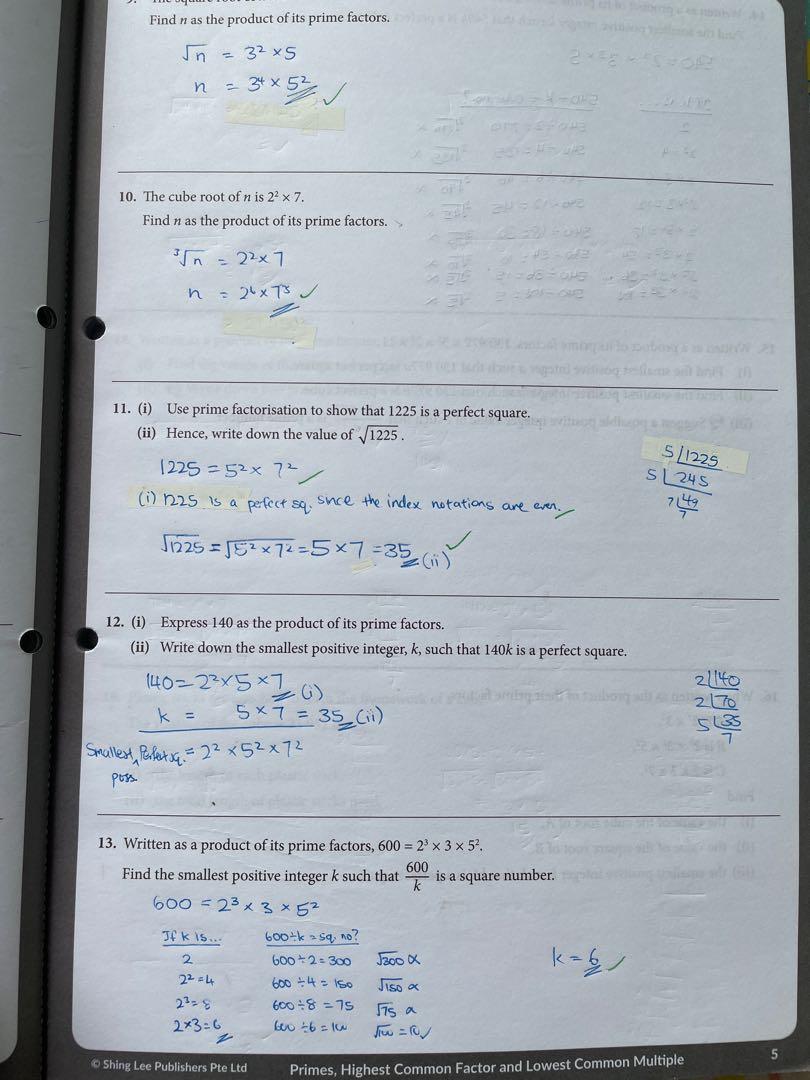 9. The square root of
Find n as the product of its prime factors.
√n = 3² × 5
n = 3⁴ × 5²
10. The cube root of n is 2² × 7.
Find n as the product of its prime factors.
³√n = 2² × 7
n = 2⁶ × 7³
11. (i) Use prime factorisation to show that 1225 is a perfect square.
(ii) Hence, write down the value of √1225.
5 | 1225
5 | 245
7 | 49
7
1225 = 5² × 7²
(i) 1225 is a perfect sq. since the index notations are even.
√1225 = √5² × 7² = 5 × 7 = 35 (ii)
12. (i) Express 140 as the product of its prime factors.
(ii) Write down the smallest positive integer, k, such that 140k is a perfect square.
140 = 2² × 5 × 7 (i)
k = 5 × 7 = 35 (ii)
Smallest poss. Perfect sq. = 2² × 5² × 7²
2 | 140
2 | 70
5 | 35
7
13. Written as a product of its prime factors, 600 = 2³ × 3 × 5².
Find the smallest positive integer k such that 600/k is a square number.
600 = 2³ × 3 × 5²
If k is... 600÷k = sq. no?
2 600÷2 = 300 √300 x
2² = 4 600÷4 = 150 √150 x
2³ = 8 600÷8 = 75 √75 x
2×3 = 6 600÷6 = 100 √100 = 10 ✓
k = 6
© Shing Lee Publishers Pte Ltd
Primes, Highest Common Factor and Lowest Common Multiple
5